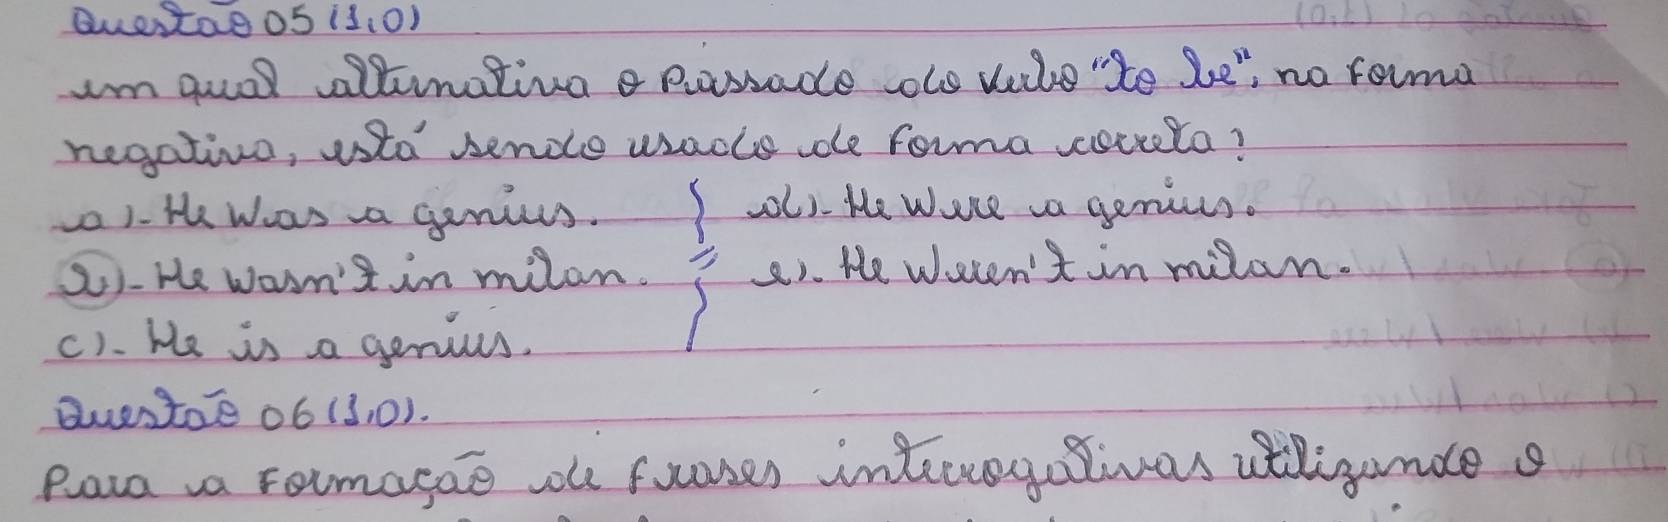 Questão 05 (1,0)
em qual alternativa o Passado do verbo "to be", na forma
negativa, está sendo usado de forma correta?
a).- He was a genius.
b).- He wasn't in milan.
c).- He is a genius.
d).- He were a genius.
e).- He weren't in milan.
Questão 06 (1,0).
Para a formação de frases interrogativas utilizando o